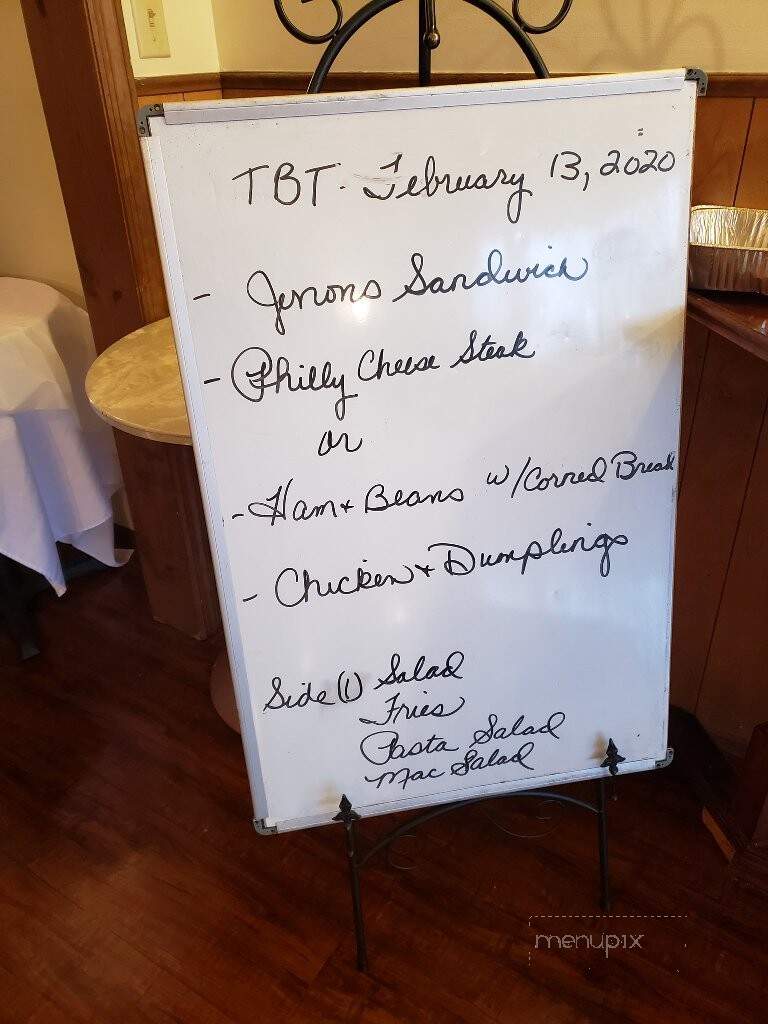 TBT. February 13, 2020
- Jenons Sandwich
- Philly Cheese Steak
or
- Ham + Beans w/Corned Break
- Chicken + Dumplings
Side (1) Salad
Fries
Pasta Salad
Mac Salad
menupix